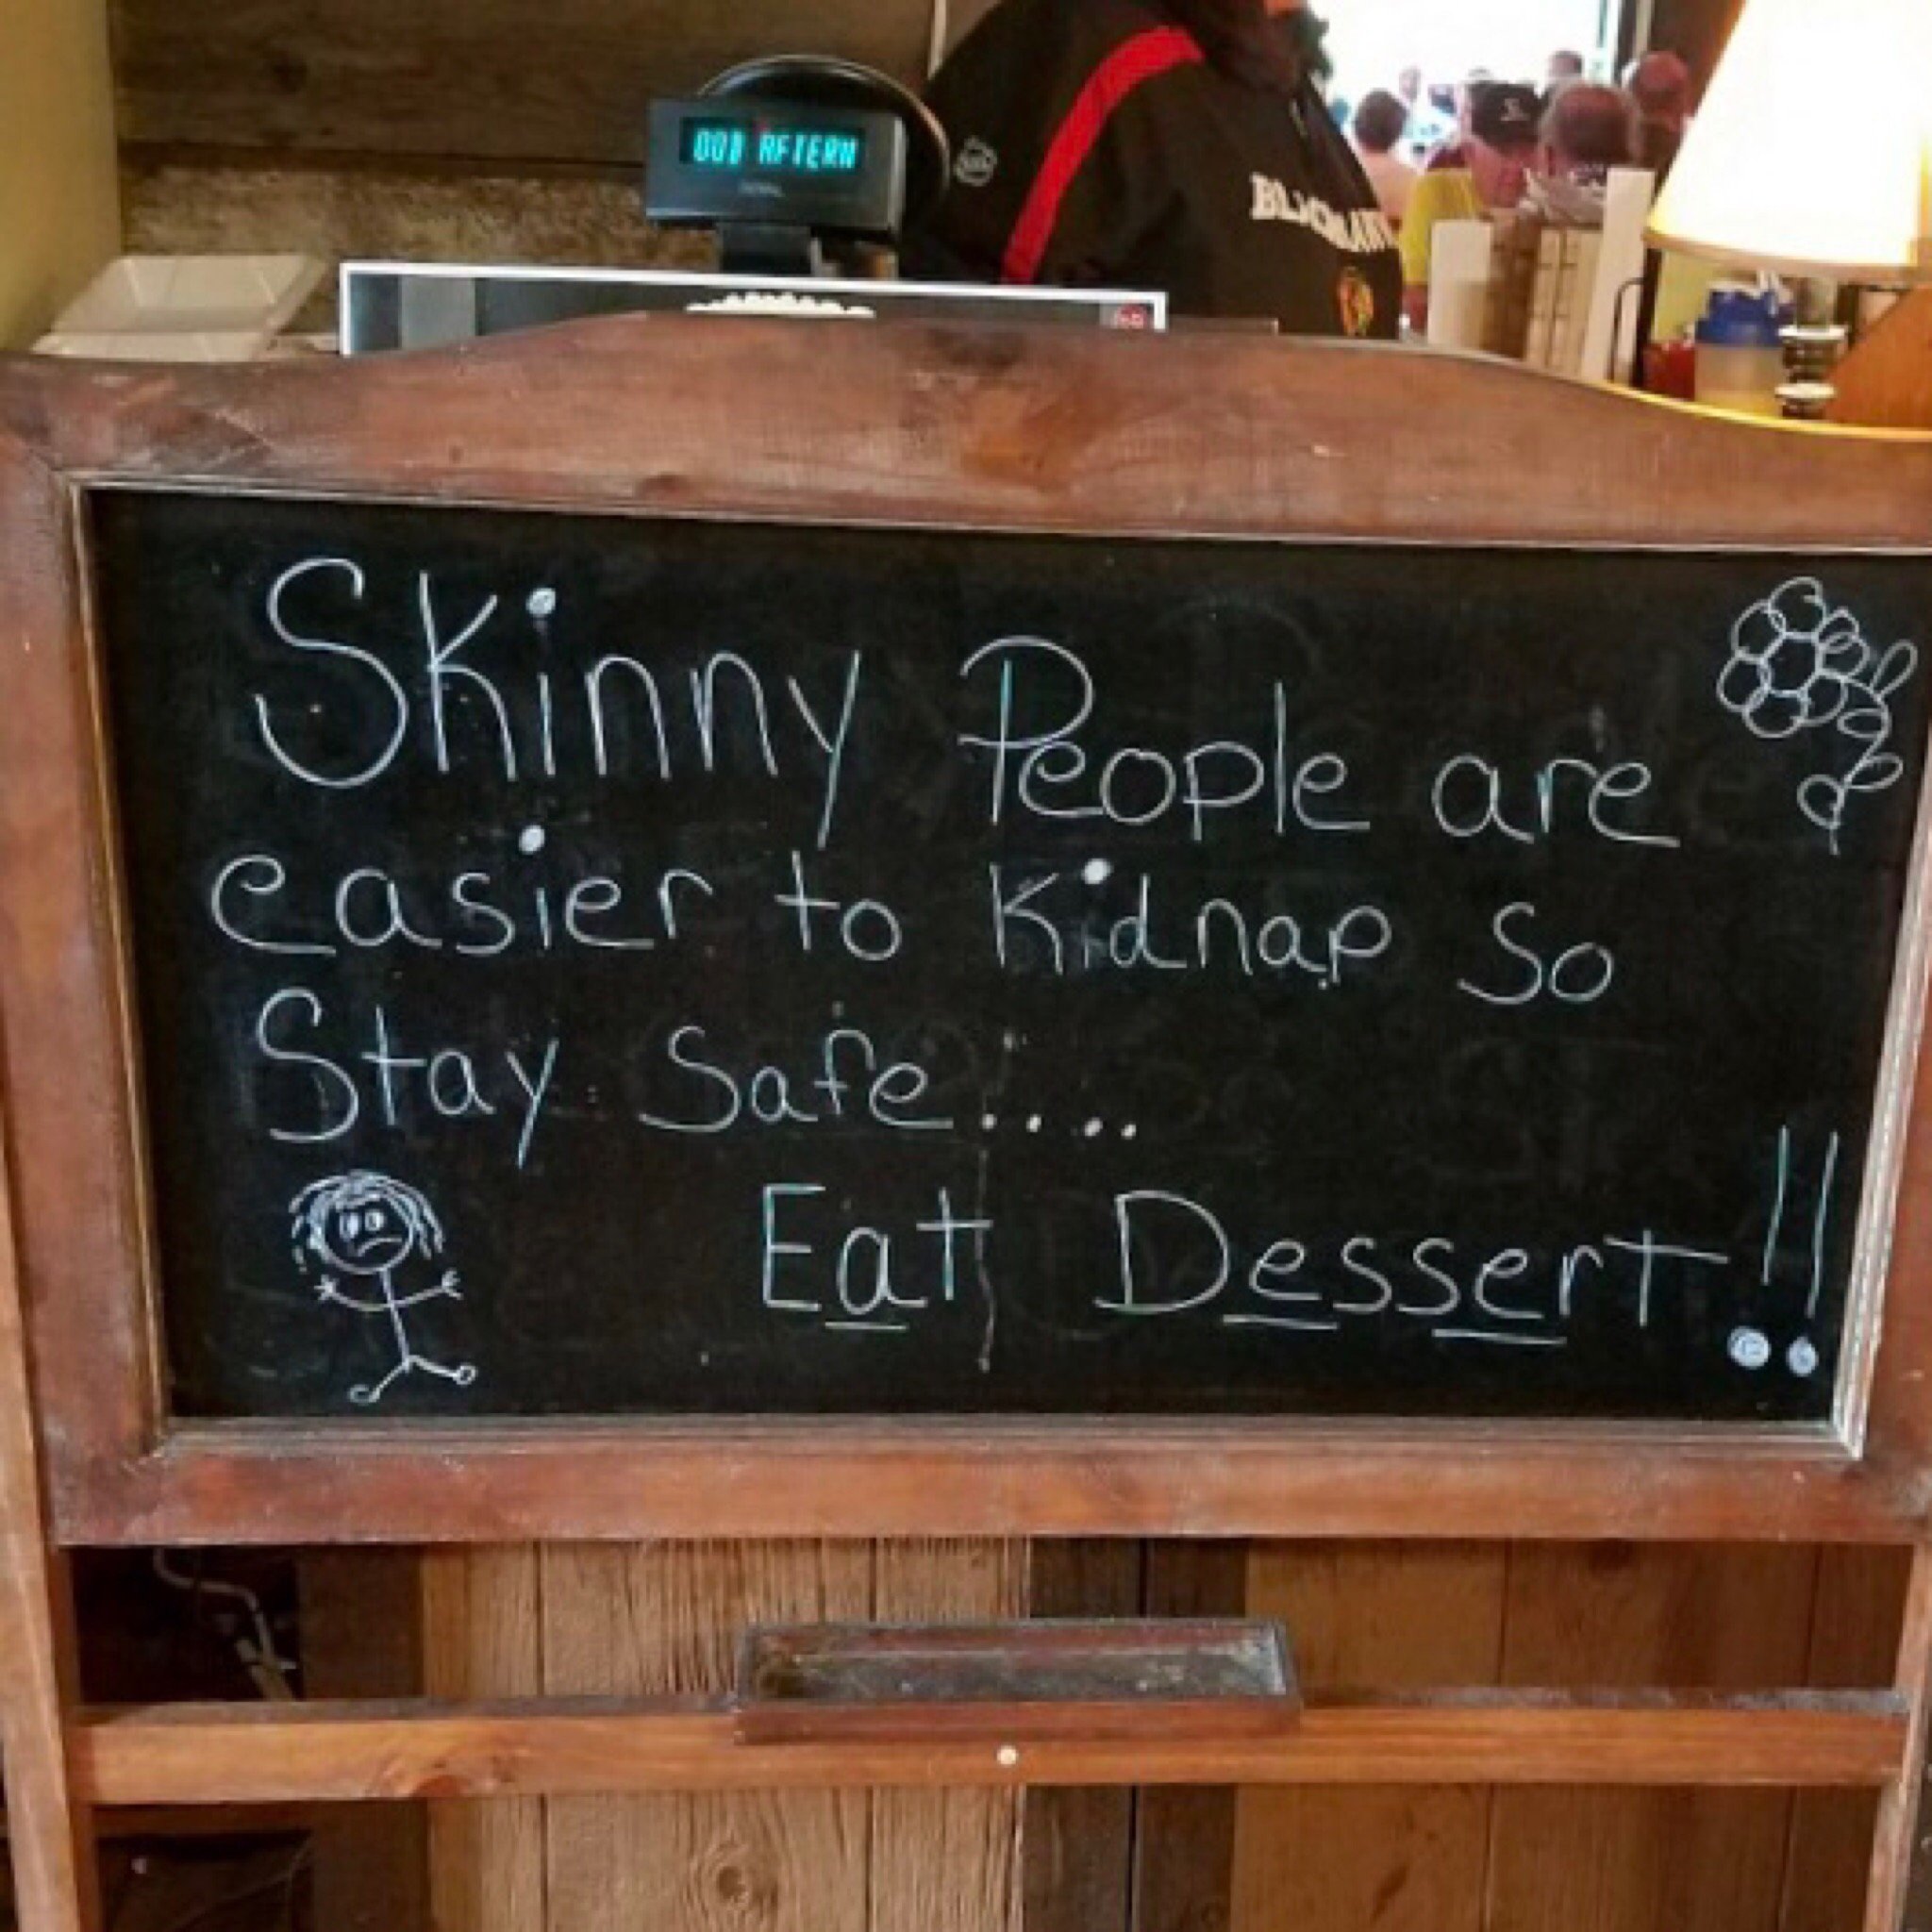 OOD AFTERN
Skinny People are
easier to Kidnap so
Stay Safe....
Eat Dessert!!